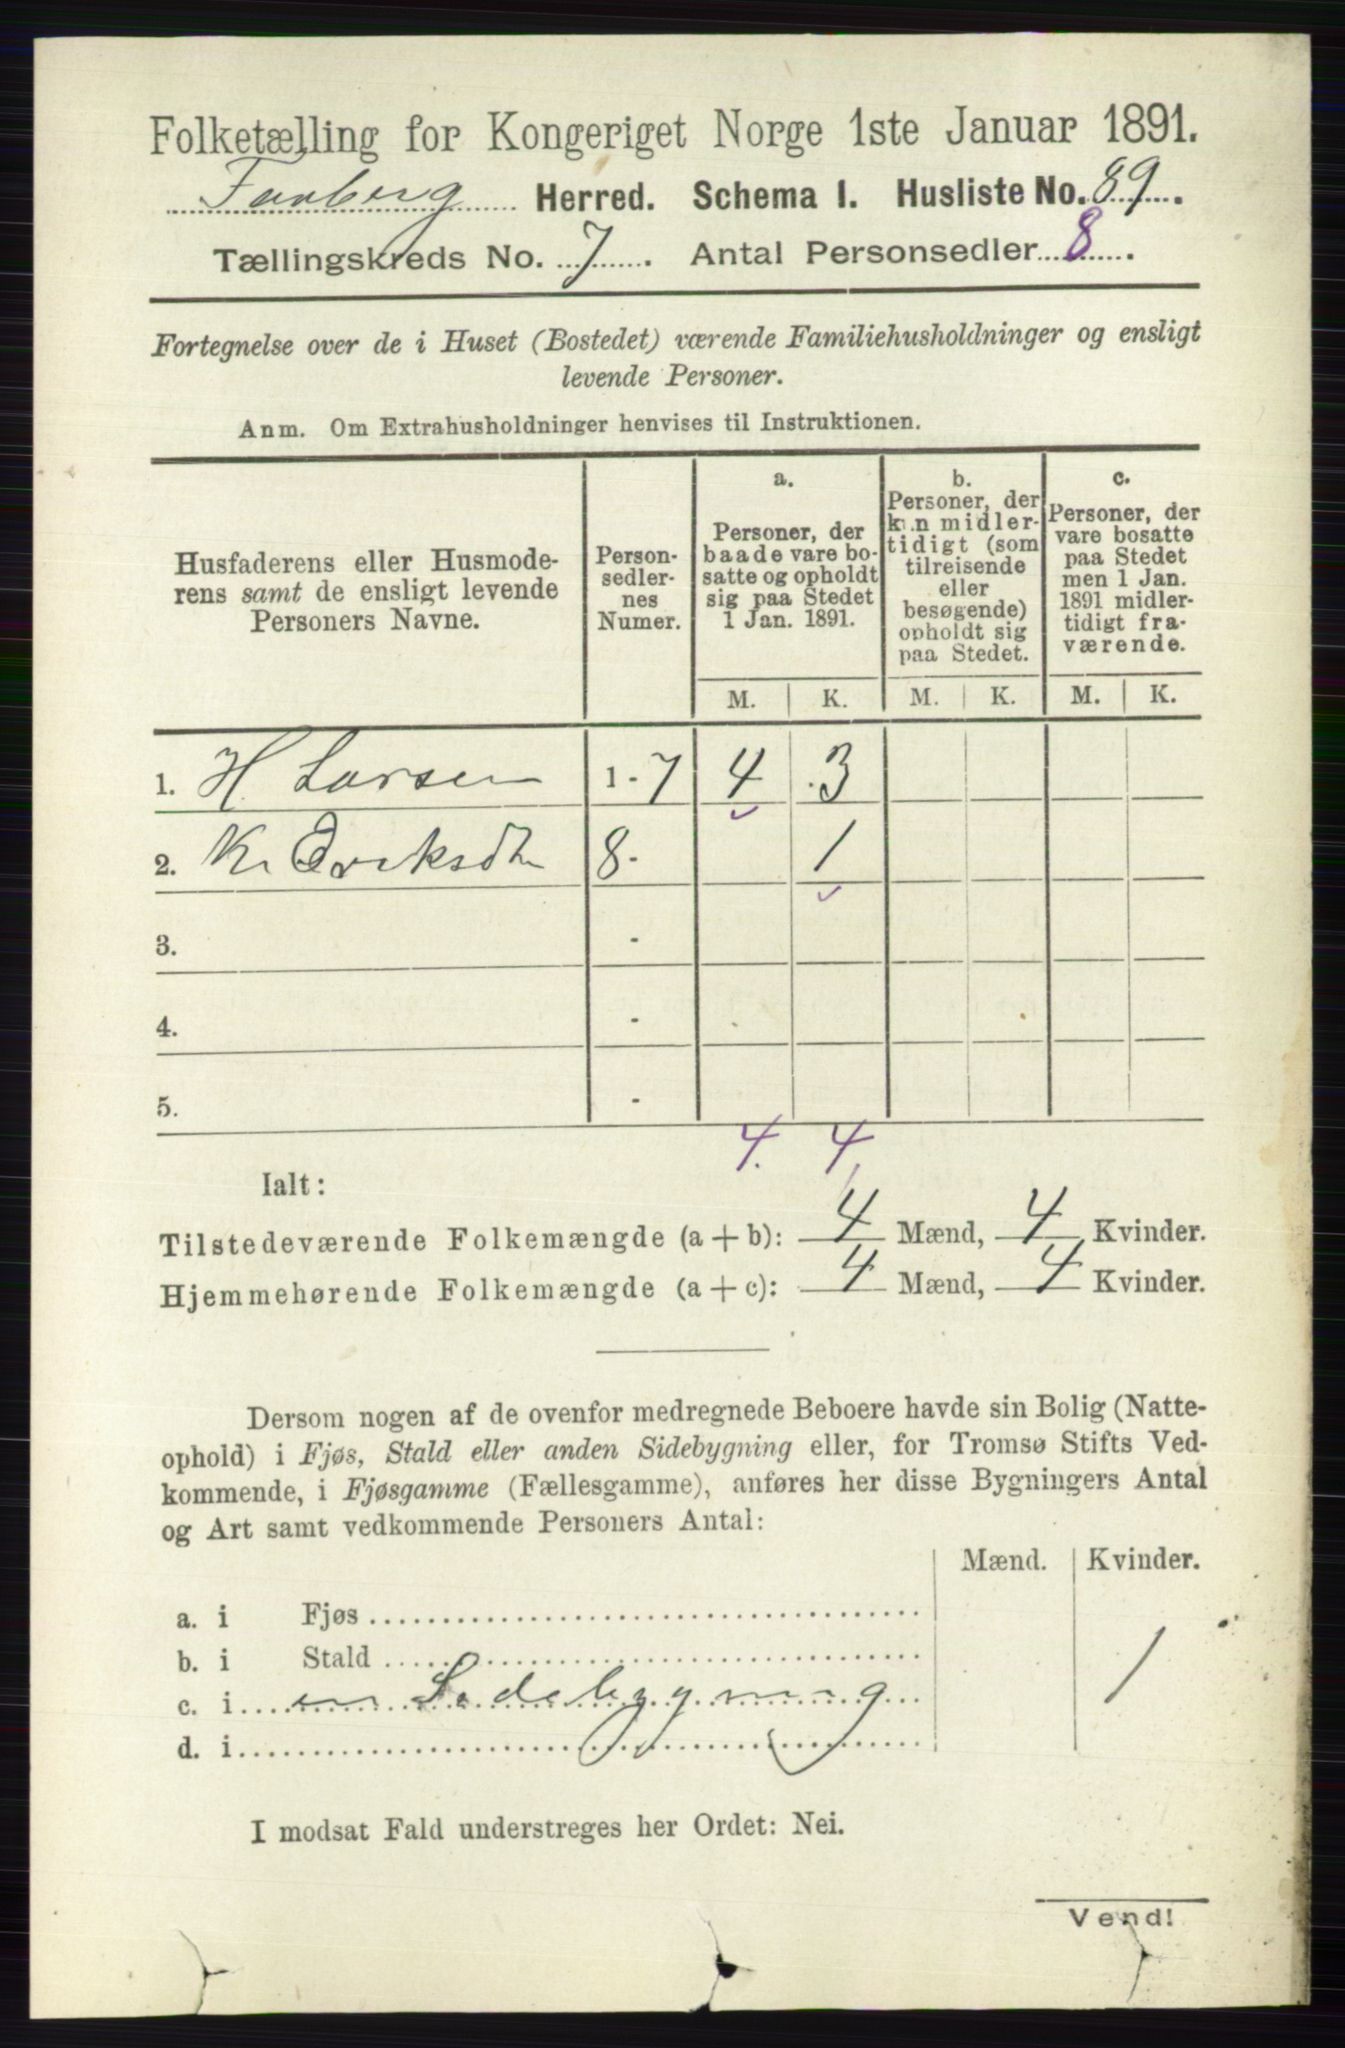 Folketælling for Kongeriget Norge 1ste Januar 1891.
Faaberg Herred. Schema I. Husliste No. 89.
Tællingskreds No. 7. Antal Personsedler 8.
Fortegnelse over de i Huset (Bostedet) værende Familiehusholdninger og ensligt
levende Personer.
Anm. Om Extrahusholdninger henvises til Instruktionen.
Husfaderens eller Husmode-
rens samt de ensligt levende
Personers Navne.
Person-
sedler-
nes
Numer.
a.
Personer, der
baade vare bo-
satte og opholdt
sig paa Stedet
1 Jan. 1891.
b.
Personer, der
kun midler-
tidigt (som
tilreisende
eller
besøgende)
opholdt sig
paa Stedet.
c.
Personer, der
vare bosatte
paa Stedet
men 1 Jan.
1891 midler-
tidigt fra-
værende.
M. K. M. K. M. K.
1. H. Larsen 1-7 4 3
2. K. Eriksdtr 8- 1
3. -
4. -
5. -
4. 4.
Ialt:
Tilstedeværende Folkemængde (a+b): 4 Mænd, 4 Kvinder.
Hjemmehørende Folkemængde (a+c): 4 Mænd, 4 Kvinder.
Dersom nogen af de ovenfor medregnede Beboere havde sin Bolig (Natte-
ophold) i Fjøs, Stald eller anden Sidebygning eller, for Tromsø Stifts Ved-
kommende, i Fjøsgamme (Fællesgamme), anføres her disse Bygningers Antal
og Art samt vedkommende Personers Antal:
Mænd. Kvinder.
a. i Fjøs
b. i Stald
c. i en Sidebygning 1
d. i
I modsat Fald understreges her Ordet: Nei.
Vend!